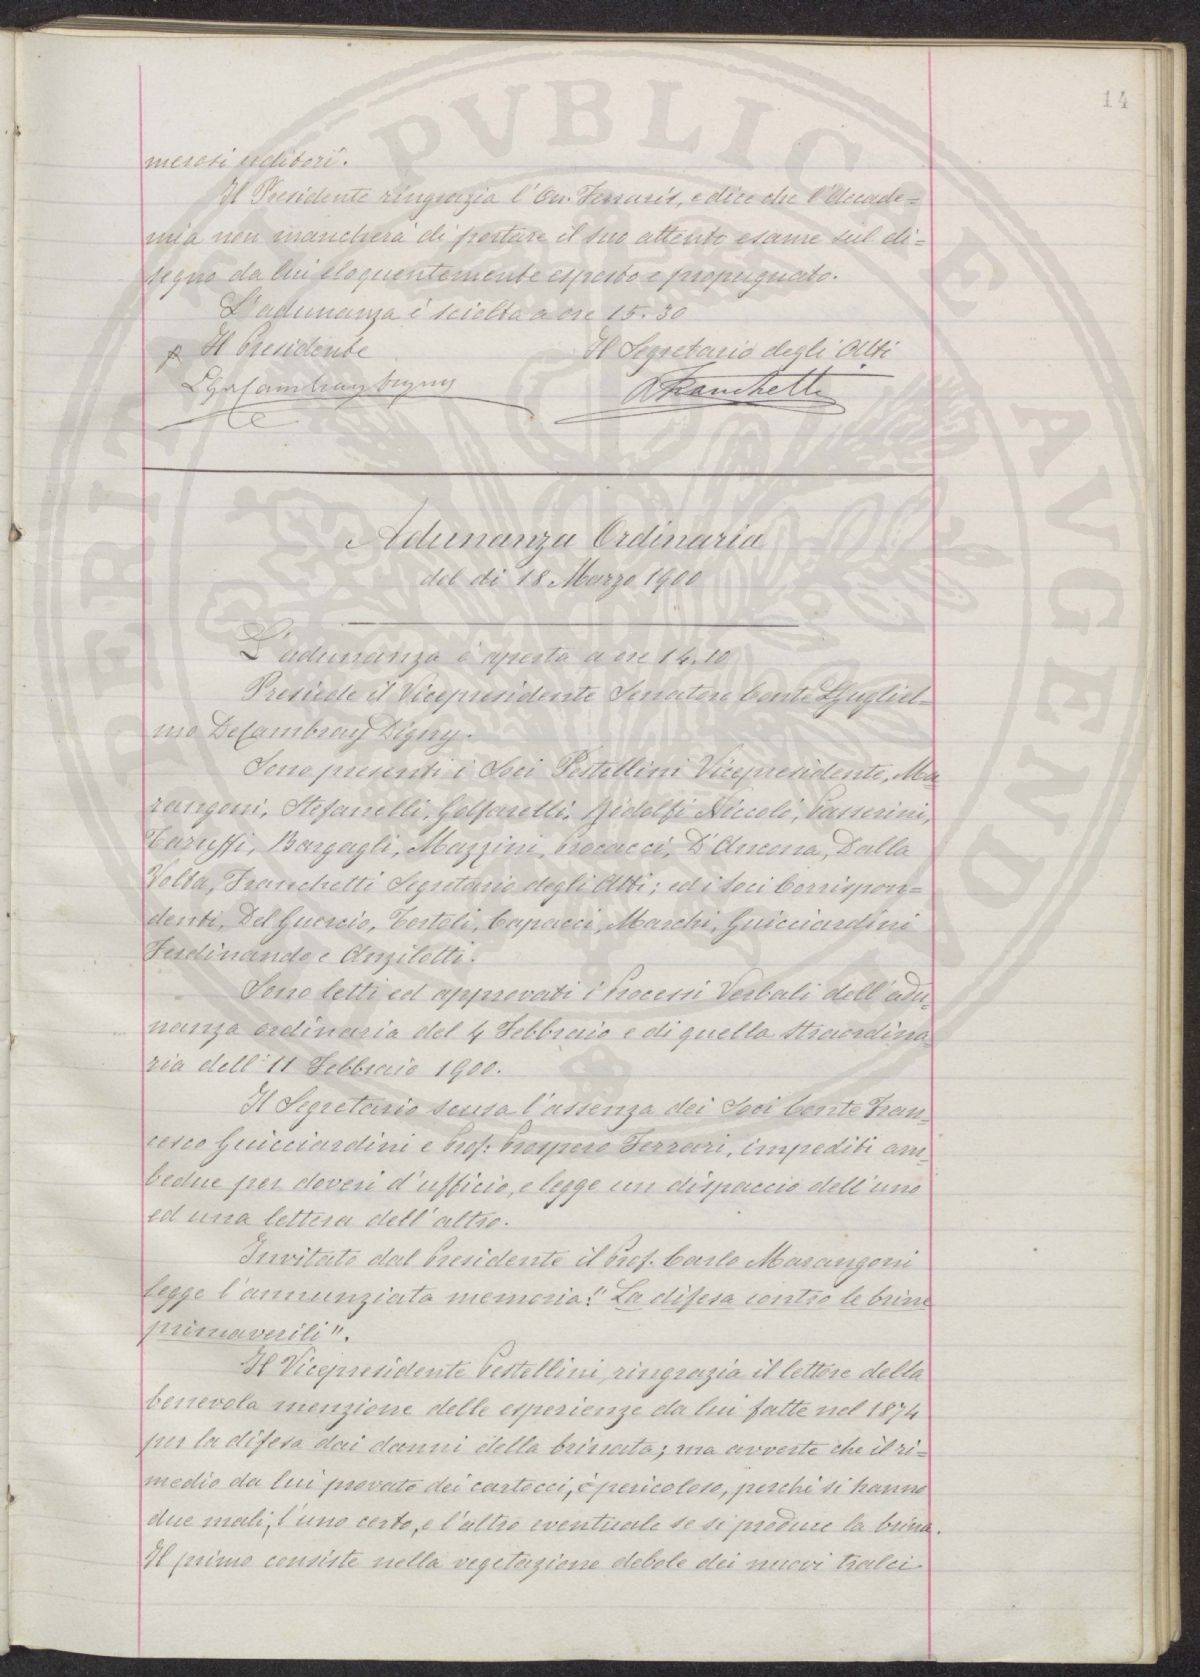 14
merosi uditori.
Il Presidente ringrazia l'On. Ferraris, e dice che l'Accade=
mia non mancherà di portare il suo attento esame sul di=
segno da lui eloquentemente esposto e propugnato.
L'adunanza è sciolta a ore 15.30
p Il Presidente
Il Segretario degli Atti
LGDeCambray Digny
AFranchetti
Adunanza Ordinaria
del dì 18 Marzo 1900
L'adunanza è aperta a ore 14.10
Presiede il Vicepresidente Senatore Conte LGugliel=
mo DeCambray Digny.
Sono presenti i Soci Pestellini Vicepresidente, Ma
rangoni, Stefanelli, Golfarelli, Ridolfi Niccolò, Passerini,
Taruffi, Bargagli, Mazzini, Procacci, D'Ancona, Dalla
Volta, Franchetti Segretario degli Atti; ed i Soci Corrispon=
denti, Del Guercio, Tortoli, Capacci, Marchi, Guicciardini
Ferdinando e Anzilotti.
Sono letti ed approvati i Processi Verbali dell'adu-
nanza ordinaria del 4 Febbraio e di quella straordina
ria dell'11 Febbraio 1900.
Il Segretario scusa l'assenza dei Soci Conte Fran-
cesco Guicciardini e Prof: Prospero Ferrari, impediti am-
bedue per doveri d'ufficio, e legge un dispaccio dell'uno
ed una lettera dell'altro.
Invitato dal Presidente il Prof. Carlo Marangoni
legge l'annunziata memoria: "La difesa contro le brine
primaverili".
Il Vicepresidente Pestellini, ringrazia il lettore della
benevola menzione delle esperienze da lui fatte nel 1874
per la difesa dai danni della brinata; ma avverte che il ri=
medio da lui provato dei cartocci, è pericoloso, perchè si hanno
due mali, l'uno certo, e l'altro eventuale se si produce la brina.
Il primo consiste nella vegetazione debole dei nuovi tralci
PUBLICAE